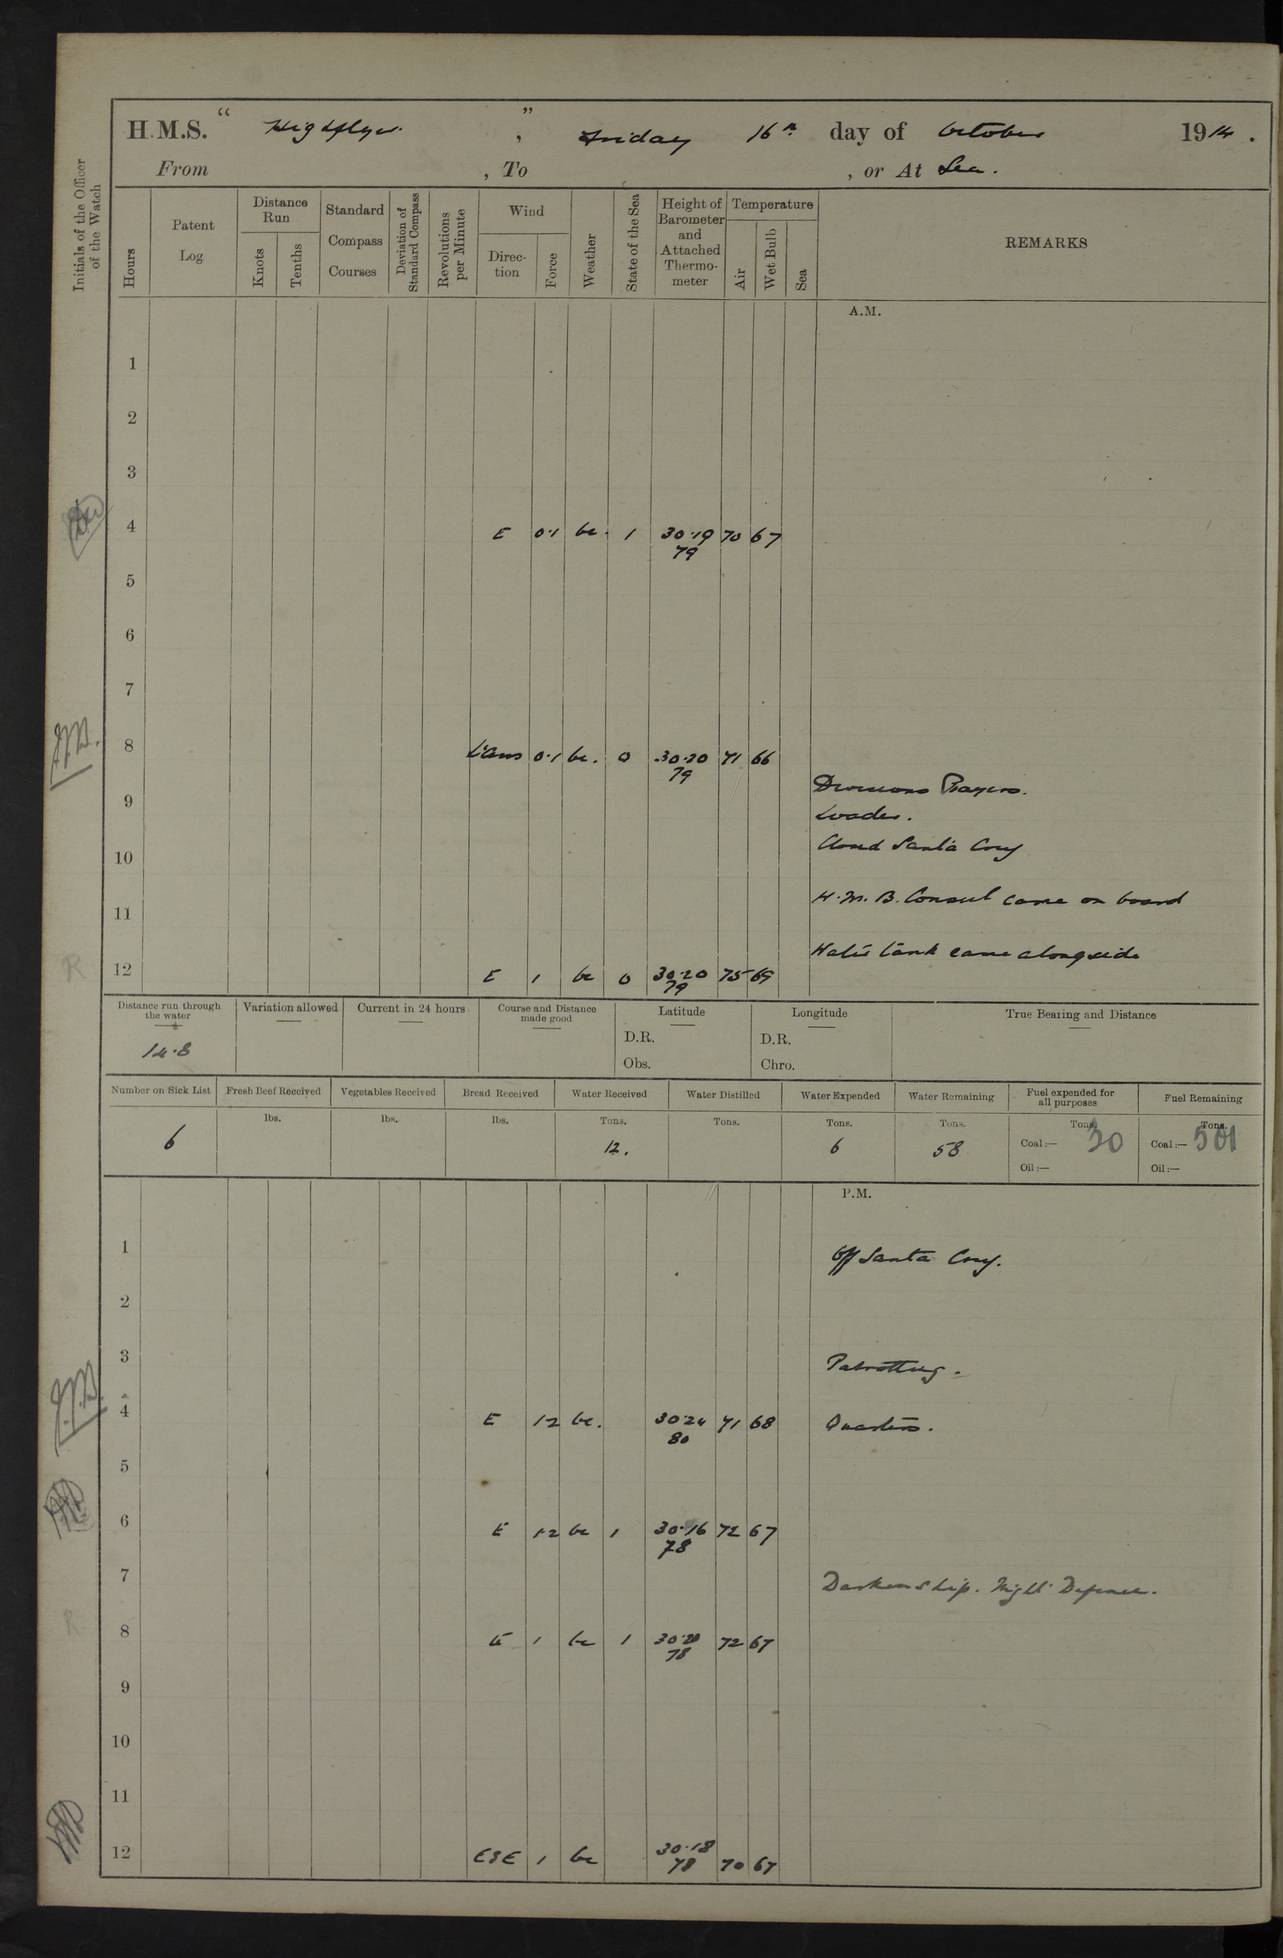 H.M.S. “ Highflyer. ” , Friday 16th day of October 1914.
From , To , or At Sea.
Initials of the Officer of the Watch
Hours
Patent Log
Distance Run
Knots
Tenths
Standard Compass Courses
Deviation of Standard Compass
Revolutions per Minute
Wind
Direction
Force
Weather
State of the Sea
Height of Barometer and Attached Thermometer
Temperature
Air
Wet Bulb
Sea
REMARKS
A.M.
1
2
3
4 E 0·1 bc. 1 30·19 70 67
79
5
6
7
J.B.
8 L'airs 0·1 bc. 0 30·20 71 66
79
Divisions Prayers.
9
Closed Santa Cruz
10
H.M.B. Consul came on board
11
Water tank came alongside
R 12 E 1 bc 0 30·20 75 69
79
Distance run through the water
Variation allowed
Current in 24 hours
Course and Distance made good
Latitude
Longitude
True Bearing and Distance
D.R. D.R.
14·8
Obs. Chro.
Number on Sick List
Fresh Beef Received
Vegetables Received
Bread Received
Water Received
Water Distilled
Water Expended
Water Remaining
Fuel expended for all purposes
Fuel Remaining
lbs. lbs. lbs. Tons. Tons. Tons. Tons. Tons. Tons.
6 12. 6 58 Coal:— 30 Coal:— 501
Oil:— Oil:—
P.M.
1 Off Santa Cruz.
2
3 Patrolling.
4 E 1·2 bc. 30·24 71 68 Quarters.
80
5
6 E 1·2 bc 1 30·16 72 67
78
7 Darken ship. Night Defence.
R 8 E 1 bc 1 30·20 72 67
78
9
10
11
12 ESE 1 bc 30·18 70 67
78